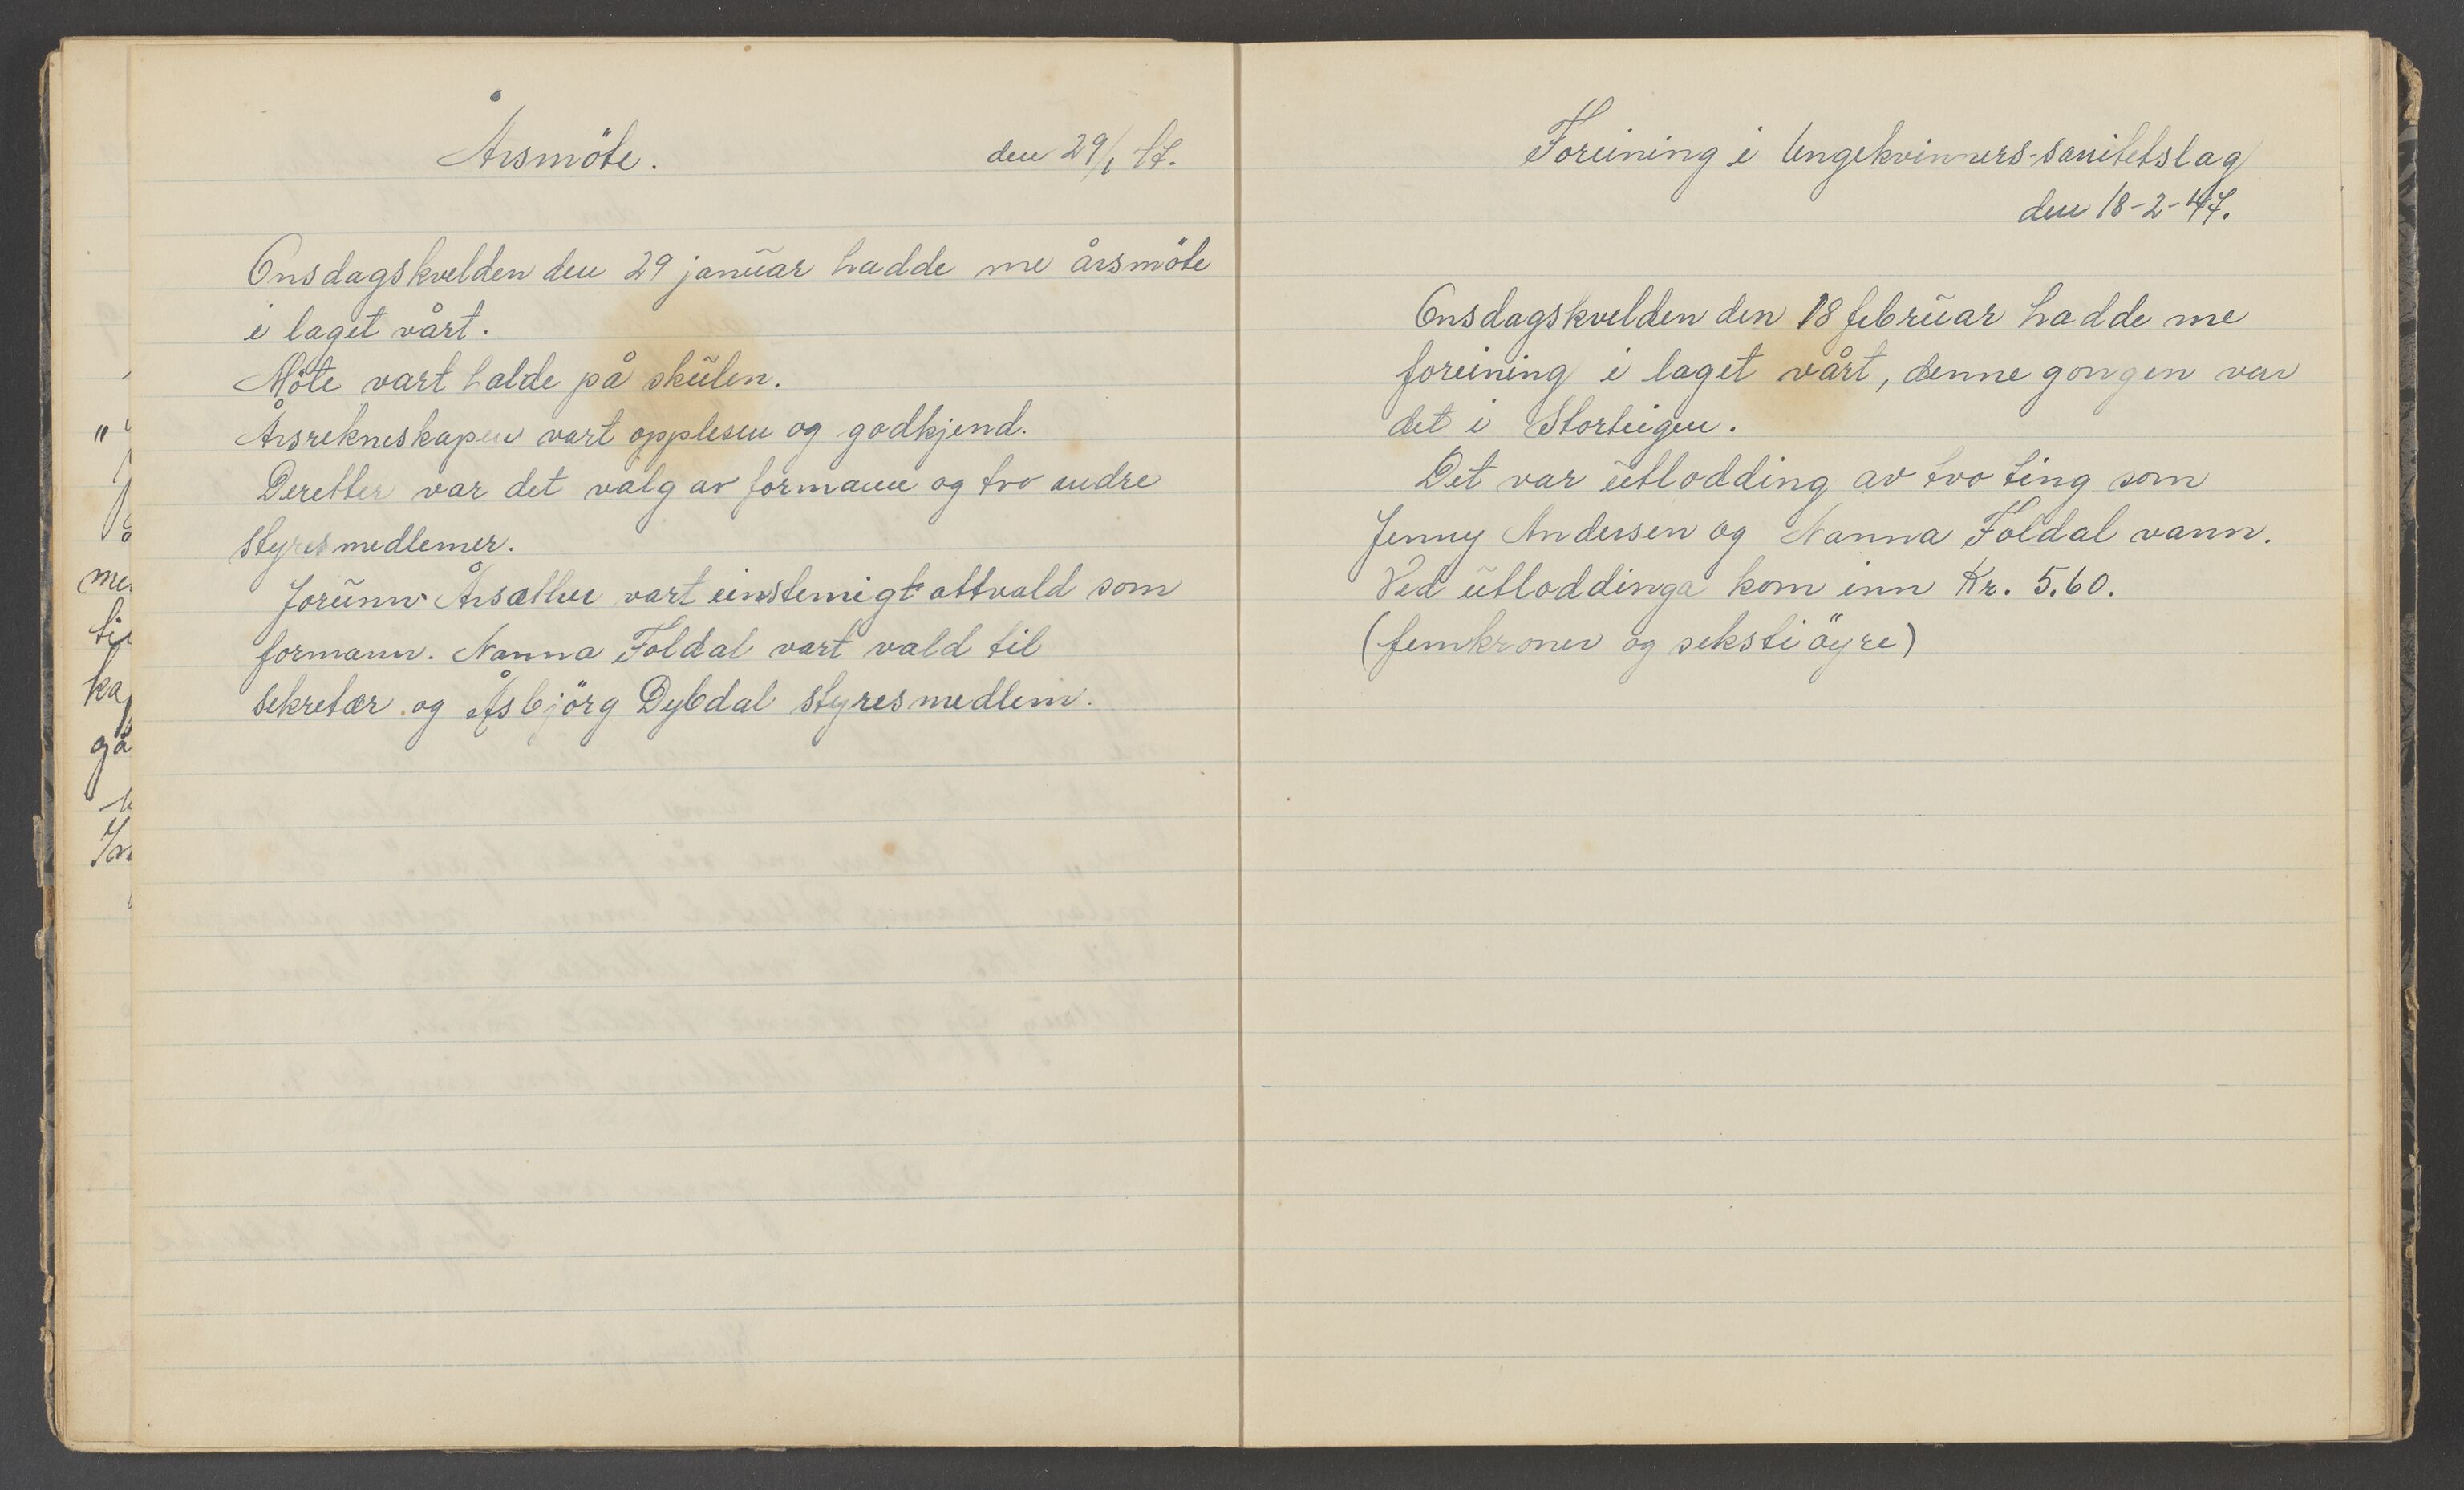 Årsmöte. den 29/1 47.
Onsdagskvelden den 29 januar hadde me årsmöte
i laget vårt.
Möte vart halde på skulen.
Årsrekneskapen vart opplesen og godkjend.
Deretter var det valg av formann og tvo andre
styresmedlemer.
Jorunn Årsæther vart einstemigt attvald som
formann. Nanna Foldal vart vald til
sekretær og Åsbjörg Dybdal styresmedlem.
"
me
ka
gå
Foreining i Ungekvinners-sanitetslag
den 18-2-47.
Onsdagskvelden den 18 februar hadde me
foreining i laget vårt, denne gongen var
det i Storteigen.
Det var utlodding av tvo ting som
Jenny Andersen og Nanna Foldal vann.
Ved utloddinga kom inn Kr. 5.60.
(femkroner og seksti öyre)